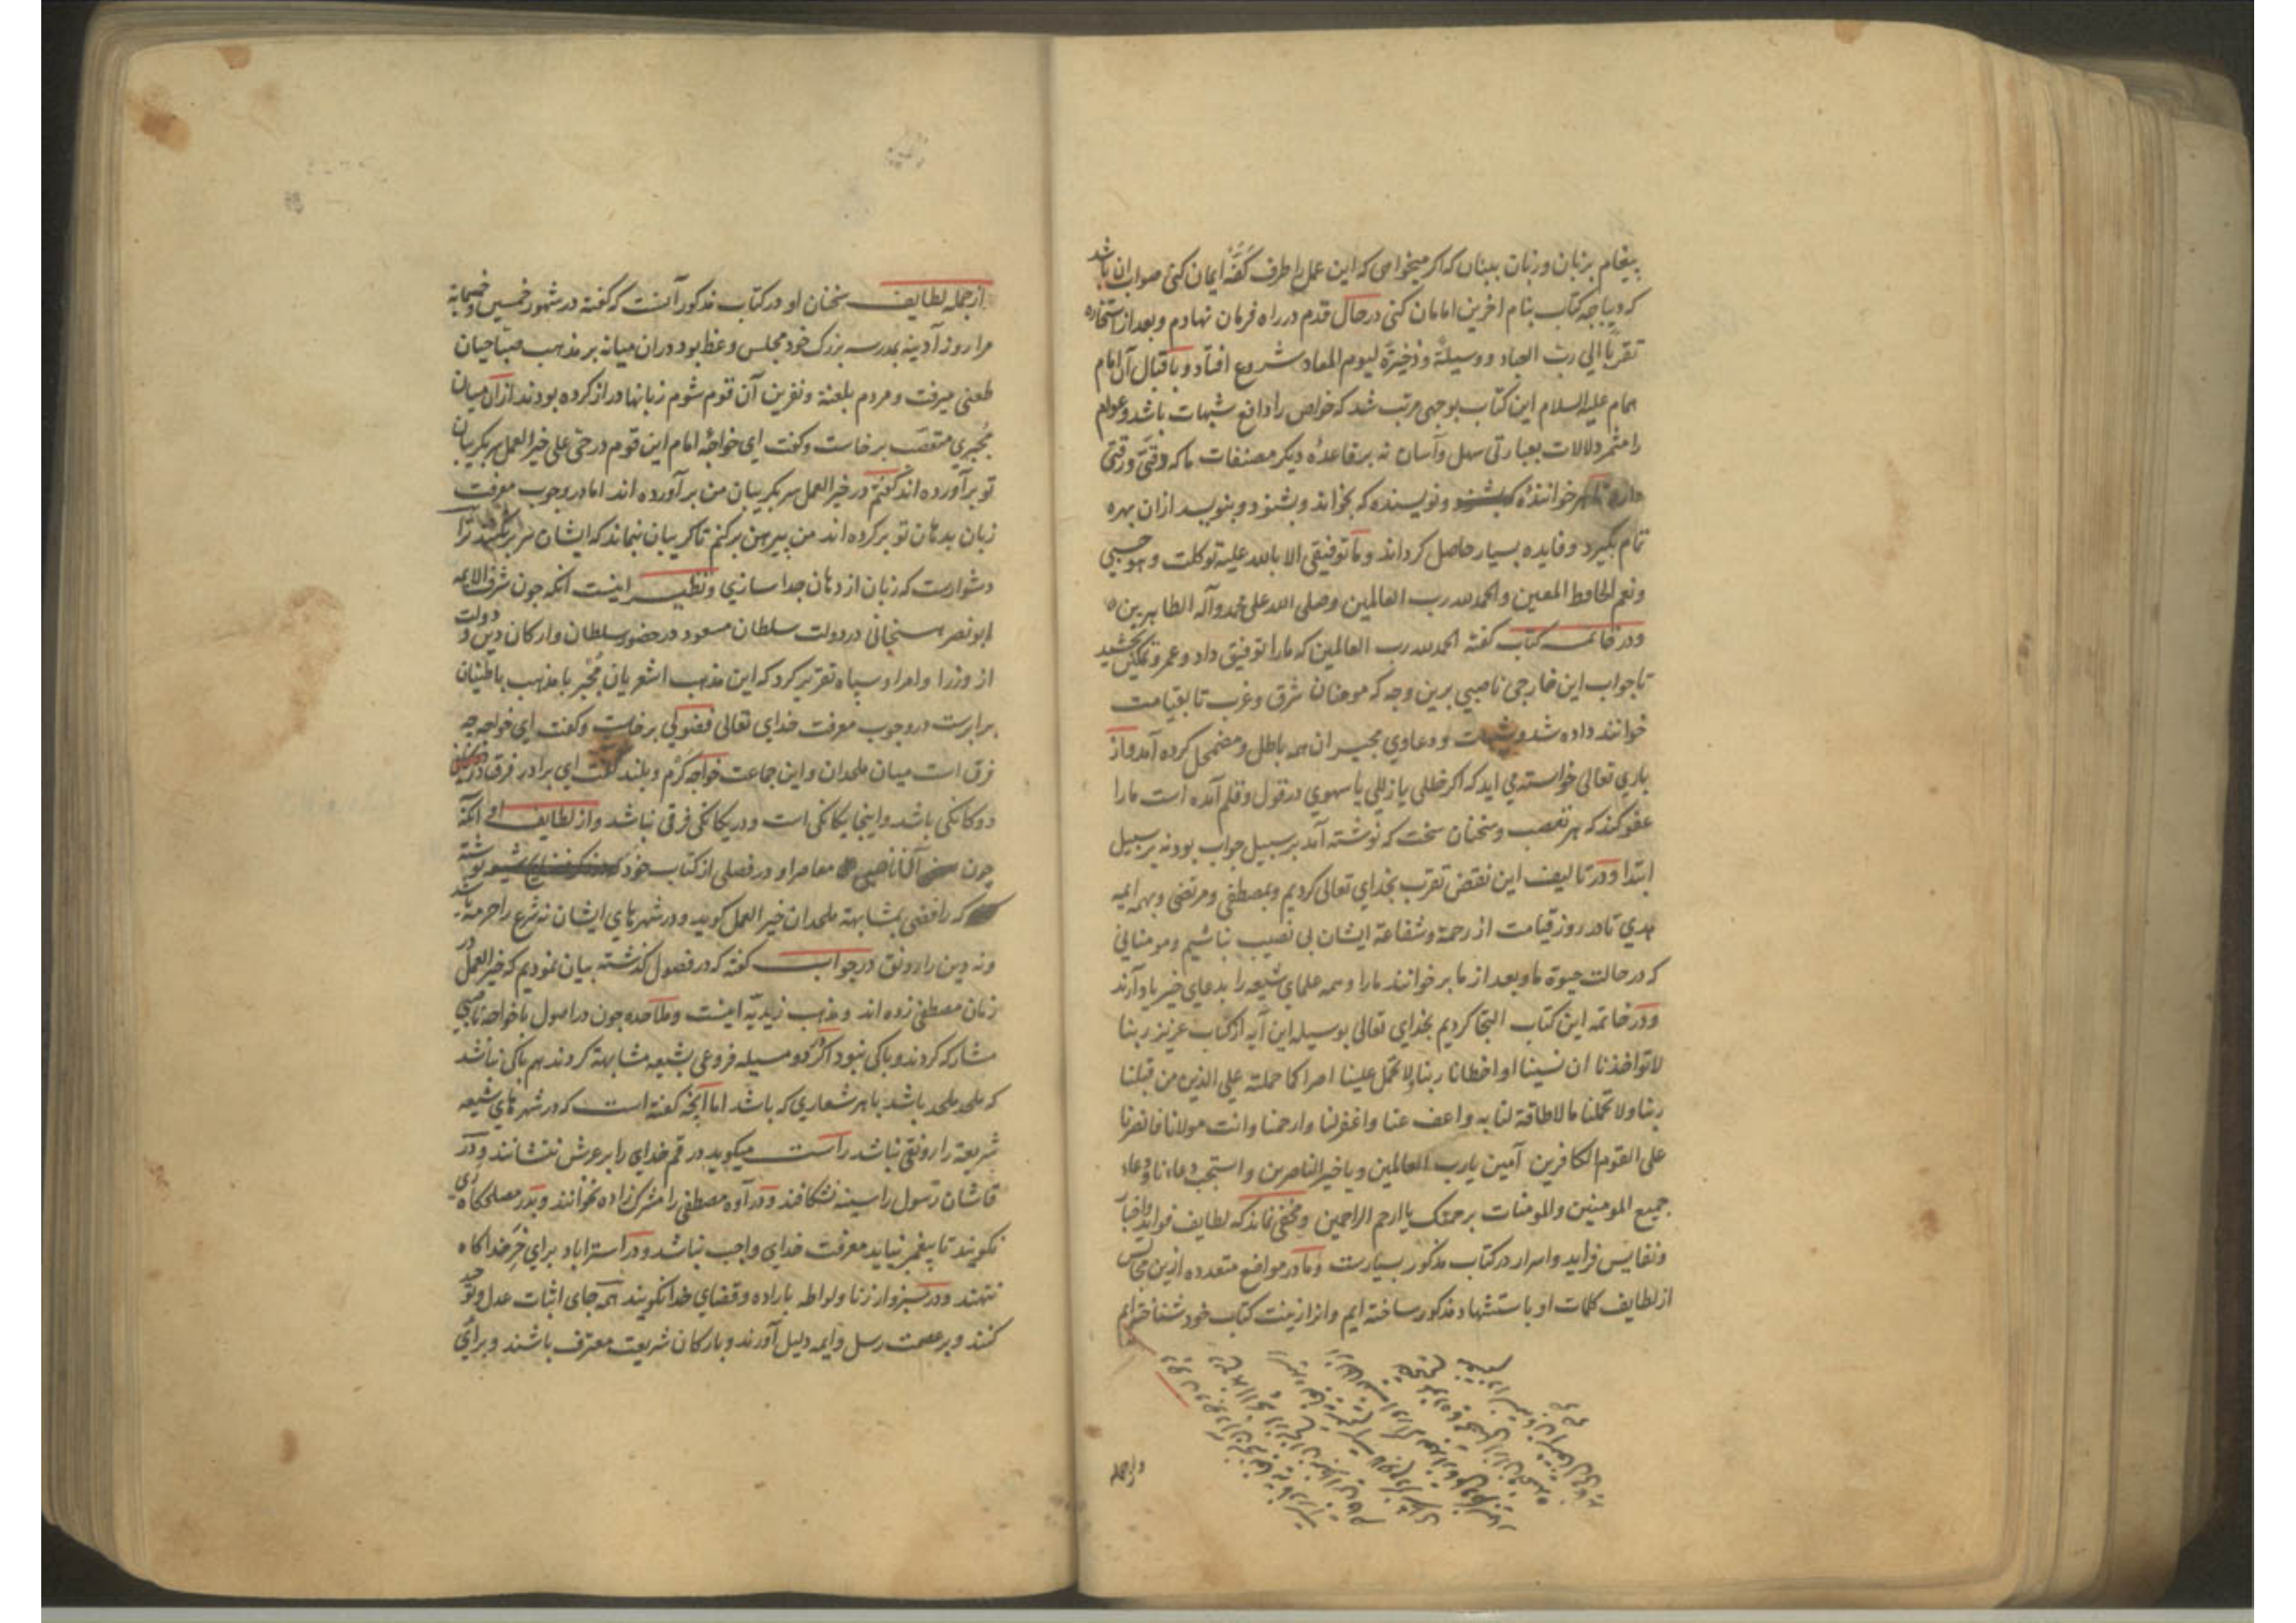 پیغام بزبان و زبان ببنان که اگر میخواهی که این عمل را طرف کفّهٔ ایمان کنی صواب ان باشد
که دیباجه کتاب بنام اخرین امامان کنی در حال قدم در راه فرمان نهادم و بعد از استخاره
تقرباً الی رب العباد و وسیلةً و ذخیرةً لیوم المعاد شروع افتاد و باقبال آن امام
همام علیه السلام این کتاب بوجهی مرتب شد که خواص را دافع شبهات باشد و عوام
را مثمر دلالات بعبارتی سهل و آسان نه بر قاعدهٔ دیگر مصنفات ما که دقتی و رقتی
دارد تا هر خوانندهٔ و نویسنده که بخواند و بشنود و بنویسد ازان بهره
تمام بگیرد و فایده بسیار حاصل کرداند و ما توفیقی الا بالله علیه توکلت و هو حسبی
ونعم الحافظ المعین والحمدلله رب العالمین وصلی الله علی محمد وآله الطاهرین
ودر خاتمه کتاب گفته الحمدلله رب العالمین که ما را توفیق داد و عمر و تمکین بخشید
تا جواب این خارجی ناصبی برین وجه که مومنان شرق و غرب تا بقیامت
خوانند داده شد و شبهات و دعاوی مجبران همه باطل و مضمحل کرده آمد و از
باری تعالی خواسته می اید که اگر خللی یا زللی یا سهوی در قول و قلم آمده است ما را
عفو کند که هر تعصب و سخنان سخت که نوشته آمد بر سبیل جواب بود نه بر سبیل
ابتدا و در تالیف این نقض تقرب بخدای تعالی کردیم و بمصطفی و مرتضی و بهمه ایمه
هدی تا در روز قیامت از رحمة و شفاعة ایشان بی نصیب نباشیم و مومنانی
که در حالت حیوة ما و بعد از ما بر خوانند ما را و همه علمای شیعه را بدعای خیر یاد آرند
ودر خاتمه این کتاب التجا کردیم بخدای تعالی بوسیله این آیه از کتاب عزیز ربنا
لا تواخذنا ان نسینا او اخطانا ربنا ولا تحمل علینا اصرا کما حملته علی الذین من قبلنا
ربنا ولا تحملنا ما لا طاقة لنا به واعف عنا واغفر لنا وارحمنا وانت مولانا فانصرنا
علی القوم الکافرین آمین یا رب العالمین ویا خیر الناصرین واستجب دعاءنا ودعاء
جمیع المومنین والمومنات برحمتک یا ارحم الراحمین ومخفی نماند که لطایف فواید واخبار
ونفایس فراید واسرار در کتاب مذکور بسیارست وما در مواضع متعدده ازین مجالس
از لطایف کلمات او باستشهاد مذکور ساخته ایم وانرا زینت کتاب خود شناخته ایم
واز جمله
از جمله لطایف سخنان او در کتاب مذکور آنست که گفته در شهور خمسین وخمسمایة
مرا روز آدینه بمدرسه بزرک خود مجلس وعظ بود دران میانه بر مذهب صباحیان
طعنی میرفت و مردم بلعنة و نفرین آن قوم شوم زبانها دراز کرده بودند ازان میان
مُجبری متعصّب برخاست وکفت ای خواجهٔ امام این قوم در حی علی خیر العمل سر بکریبان
تو برآورده اند گفتم در خیر العمل سر بکریبان من برآورده اند اما در وجوب معرفت
زبان بدهان تو بر کرده اند من پیرهن برکنم تا کریبان نماند که ایشان سر برکنند ترا
دشوارست که زبان از دهان جدا سازی و نظیر اینست آنکه چون شرف الایمه
ابو نصر هسنجانی در دولت سلطان مسعود در حضور سلطان و ارکان دین و دولت
از وزرا و امرا و سپاه تقریر کرد که این مذهب اشعریان مُجبر با مذهب باطنیان
برابرست در وجوب معرفت خدای تعالی فضولی برخاست وکفت ای خواجه چه
فرق است میان ملحدان و این جماعت خواجه کرم و بلند گفت ای برادر فرق در
دوکانکی باشد و اینجا یکانکی است و در یکانکی فرقی نباشد و از لطایف او آنکه
چون ناصبی معاصر او در فصلی از کتاب خود نوشته
که رافضی بمشابهة ملحدان خیر العمل گوید و در شهرهای ایشان نه شرع را حرمة باشد
ونه دین را رونق در جواب گفته که در فصول گذشته بیان نمودیم که خیر العمل در
زمان مصطفی زده اند و مذهب زیدیّه اینست و ملاحده چون در اصول با خواجه ناصبی
مشارکه کردند و باکی نبود اگر در دو مسیله فروعی بشیعه مشابهة کردند هم باکی نباشد
که ملحد ملحد باشد با هر شعاری که باشد اما آنچه گفته است که در شهرهای شیعه
شریعة را رونقی نباشد راست میکوید در قم خدای را بر عرش ننشانند و در
قاشان رسول را سینه نشکافند و در آوه مصطفی را مشرک زاده نخوانند و بدر مصلحکاه ری
نکویند تا پیغمبر نیاید معرفت خدای واجب نباشد و در استراباد برای خرِ خدا کاه
ننهند و در سبزوار زنا و لواطه باراده و قضای خدا نکویند همه جای اثبات عدل و توحید
کنند و بر عصمت رسل و ایمه دلیل آورند و بارکان شریعت معترف باشند و برای